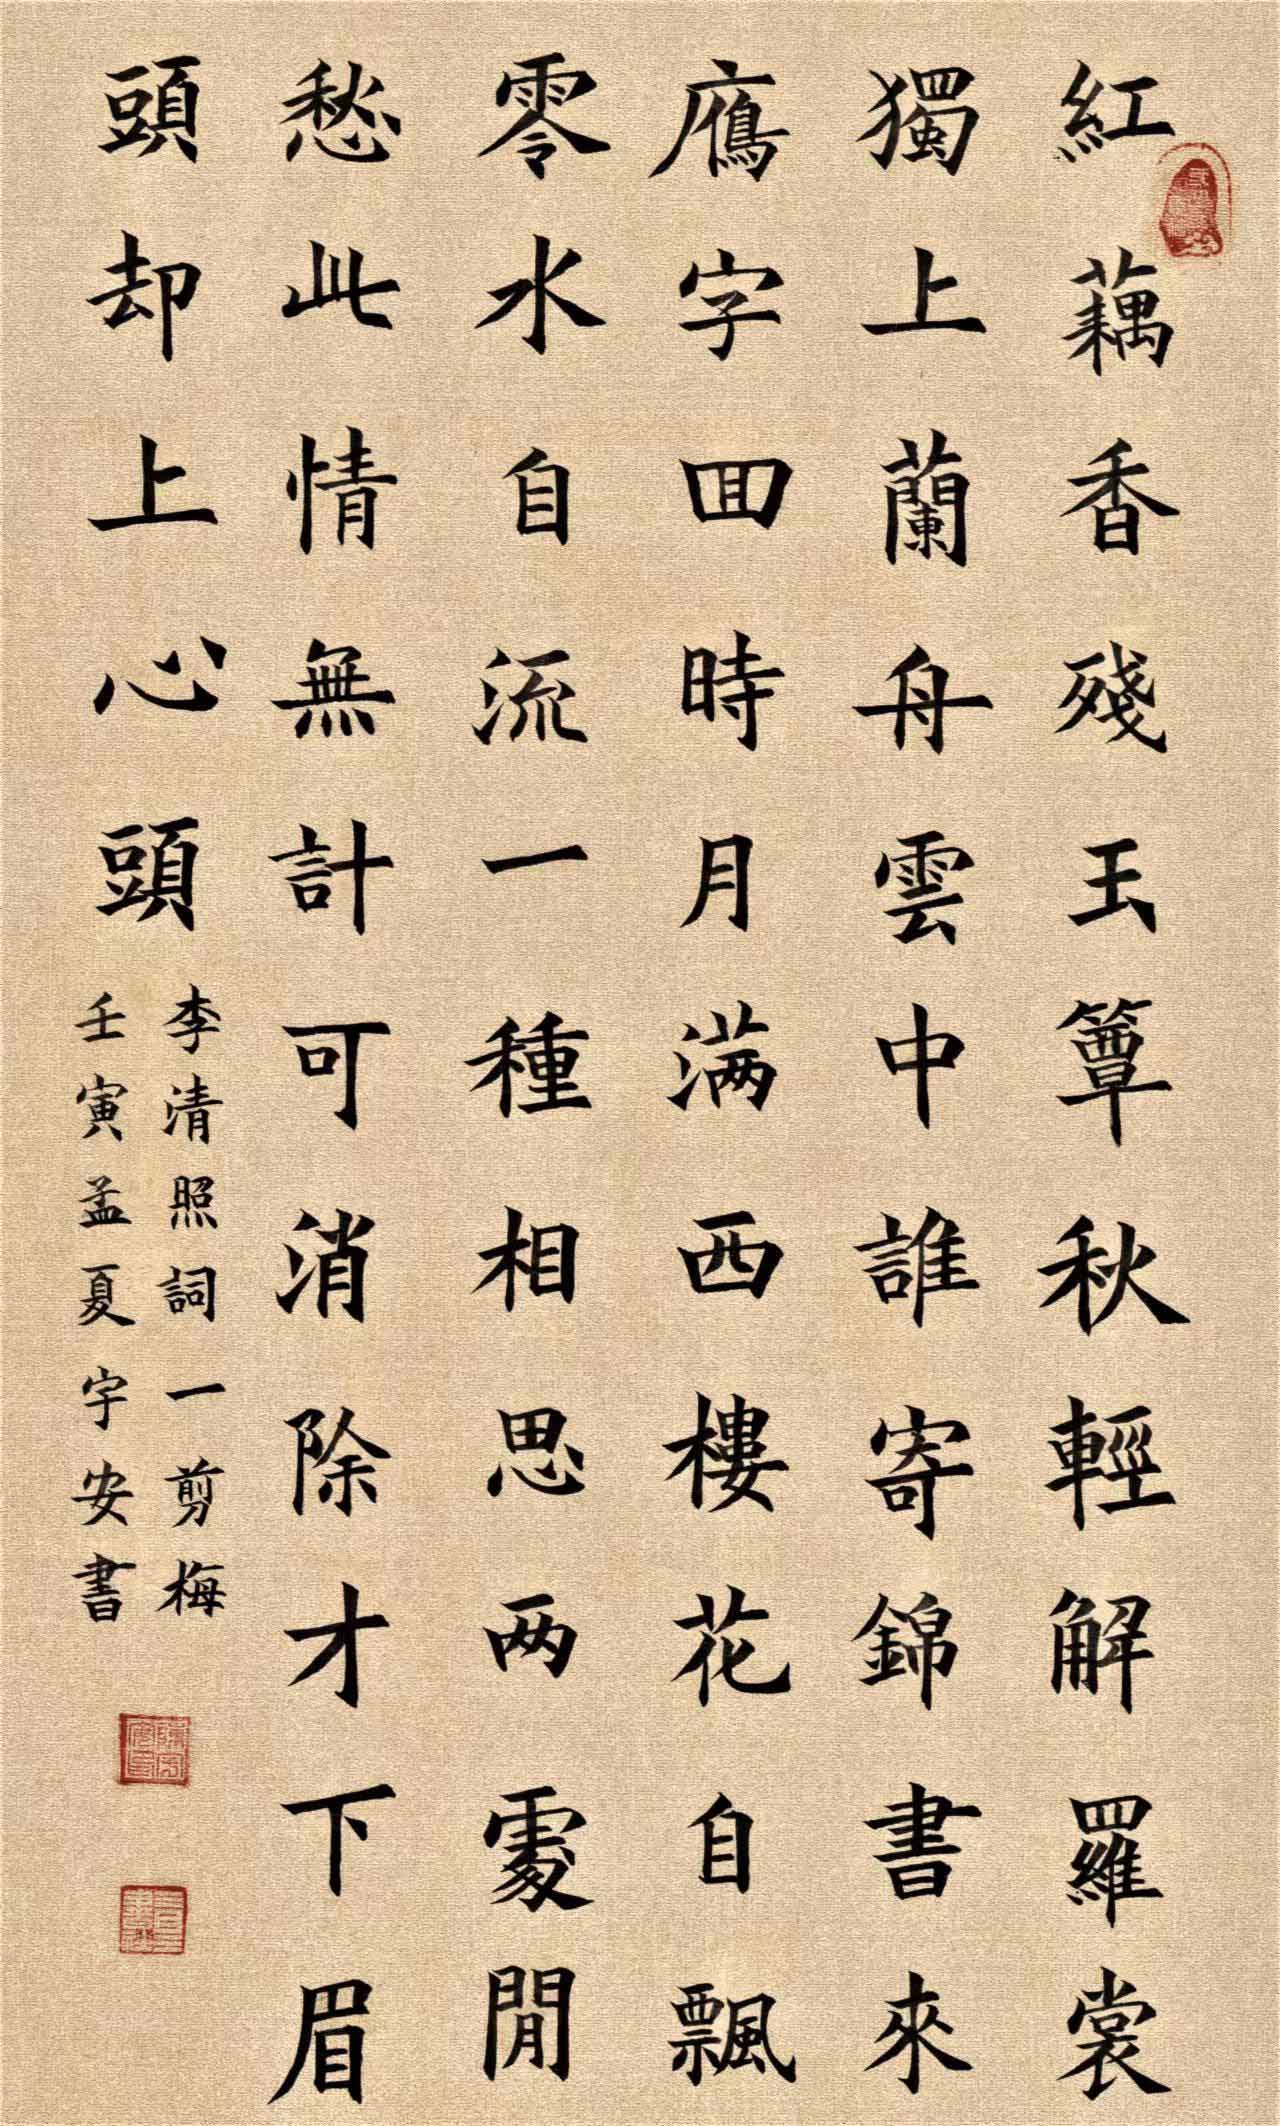 紅藕香殘玉簟秋輕解羅裳
獨上蘭舟雲中誰寄錦書來
鴈字回時月满西樓花自飄
零水自流一種相思两處閒
愁此情無計可消除才下眉
頭却上心頭
李清照詞一剪梅
壬寅孟夏宇安書